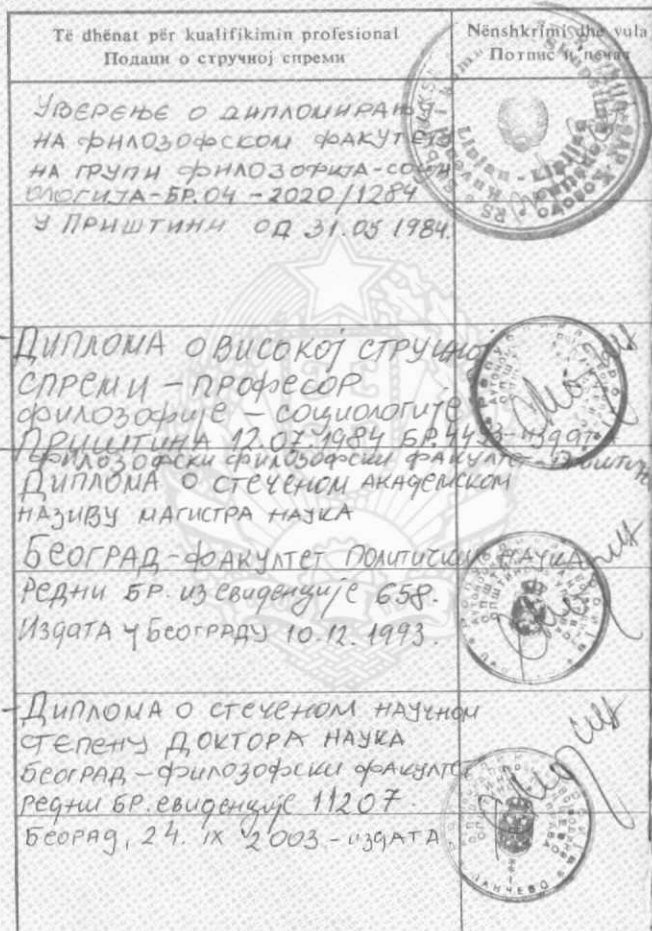 Të dhënat për kualifikimin profesional
Подаци о стручној спреми
Nënshkrimi dhe vula
Потпис и печат
УВЕРЕЊЕ О ДИПЛОМИРАЊУ
НА ФИЛОЗОФСКОМ ФАКУТЕТУ
НА ГРУПИ ФИЛОЗОФИЈА-СОЦИ
ОЛОГИЈА-БР.04-2020/1284
У ПРИШТИНИ ОД 31.05 1984.
Lipjan - Lipljan
ДИПЛОМА О ВИСОКОЈ СТРУЧНОЈ
СПРЕМИ - ПРОФЕСОР
ФИЛОЗОФИЈЕ - СОЦИОЛОГИЈЕ
ПРИШТИНА 12.07.1984 БР. ИЗДАТА
ФИЛОЗОФСКИ ФИЛОЗОФСКИ ФАКУЛТЕТ - ПРИШТИНА
ДИПЛОМА О СТЕЧЕНОМ АКАДЕМСКОМ
НАЗИВУ МАГИСТРА НАУКА
БЕОГРАД-ФАКУЛТЕТ ПОЛИТИЧКИХ НАУКА
РЕДНИ БР. ИЗ ЕВИДЕНЦИЈЕ 658.
ИЗДАТА У БЕОГРАДУ 10.12.1993.
ДИПЛОМА О СТЕЧЕНОМ НАУЧНОМ
СТЕПЕНУ ДОКТОРА НАУКА
БЕОГРАД-ФИЛОЗОФСКИ ФАКУЛТЕТ
РЕДНИ БР. ЕВИДЕНЦИЈЕ 11207.
БЕОРАД, 24. IX 2003 - ИЗДАТА.
ЈАНЧЕВО